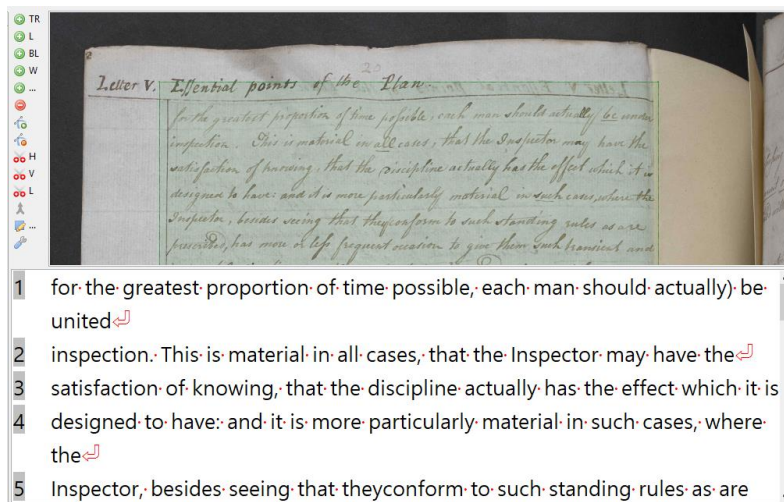 TR
L
BL
W
...
H
V
L
...
20
Letter V. Essential points of the Plan
for the greatest proportion of time possible, each man should actually be under
inspection. This is material in all cases, that the Inspector may have the
satisfaction of knowing, that the discipline actually has the effect which it is
designed to have: and it is more particularly material in such cases, where the
Inspector, besides seeing that they conform to such standing rules as are
prescribed, has more or less frequent occasion to give them such transient and
1 for the greatest proportion of time possible, each man should actually) be
united
2 inspection. This is material in all cases, that the Inspector may have the
3 satisfaction of knowing, that the discipline actually has the effect which it is
4 designed to have: and it is more particularly material in such cases, where
the
5 Inspector, besides seeing that theyconform to such standing rules as are